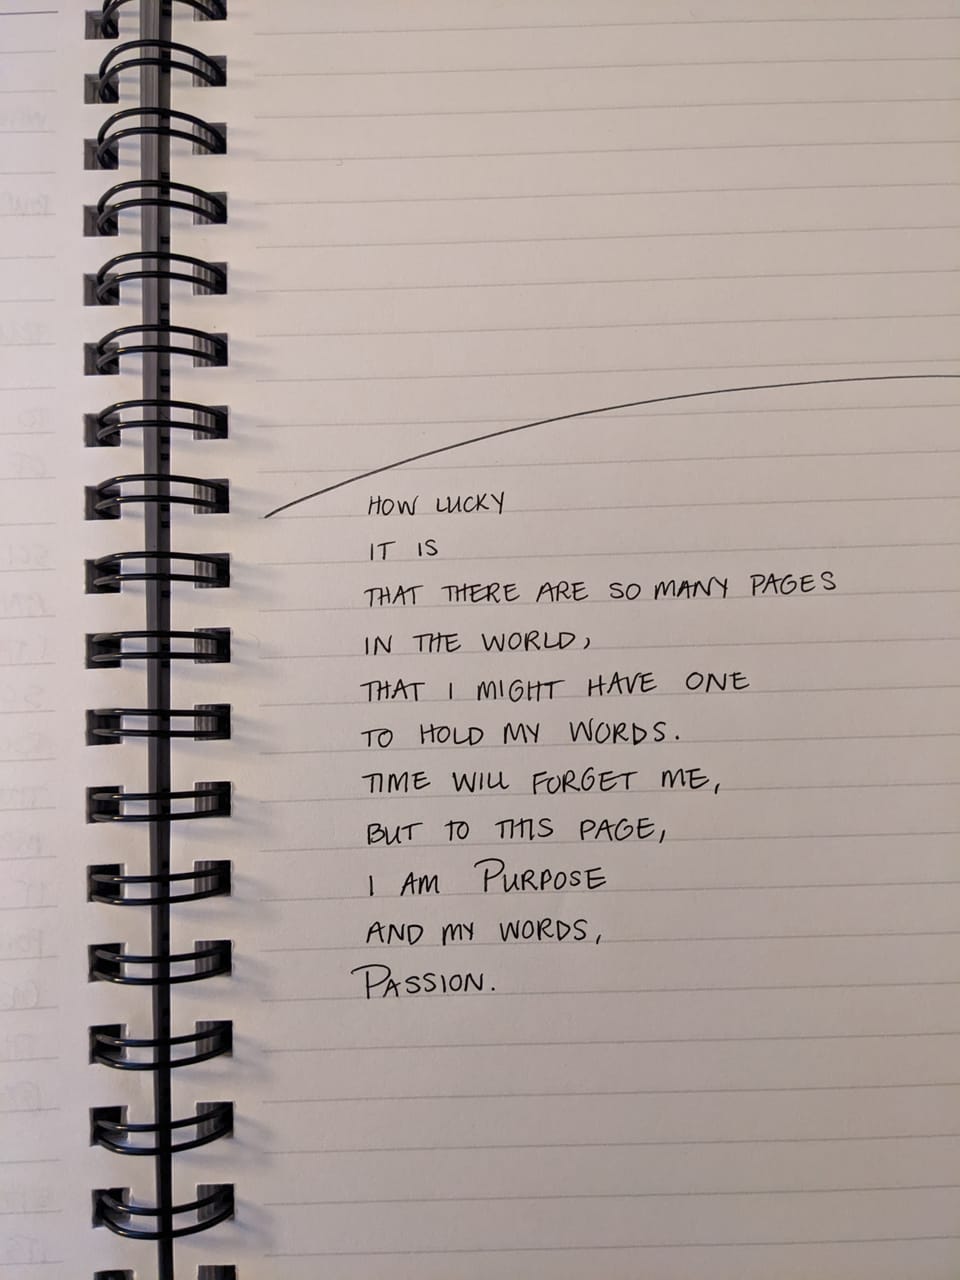 HOW LUCKY
IT IS
THAT THERE ARE SO MANY PAGES
IN THE WORLD,
THAT I MIGHT HAVE ONE
TO HOLD MY WORDS.
TIME WILL FORGET ME,
BUT TO THIS PAGE,
I AM PURPOSE
AND MY WORDS,
PASSION.